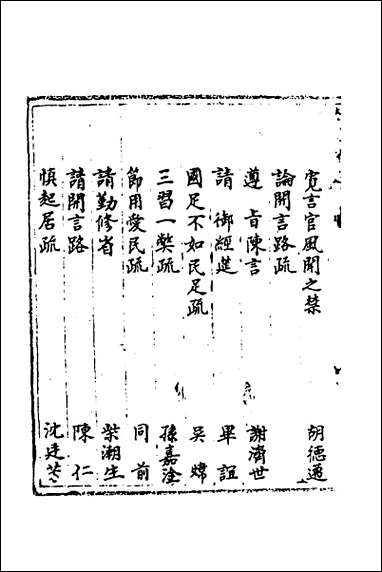 寛言官風聞之禁 胡德邁
論開言路疏
遵 旨陳言 謝濟世
請 御經筵 畢誼
國足不如民足疏 吳煒
三習一獘疏 孫嘉淦
節用愛民疏 同前
請勤修省 柴潮生
請開言路 陳仁
慎起居疏 沈廷芳